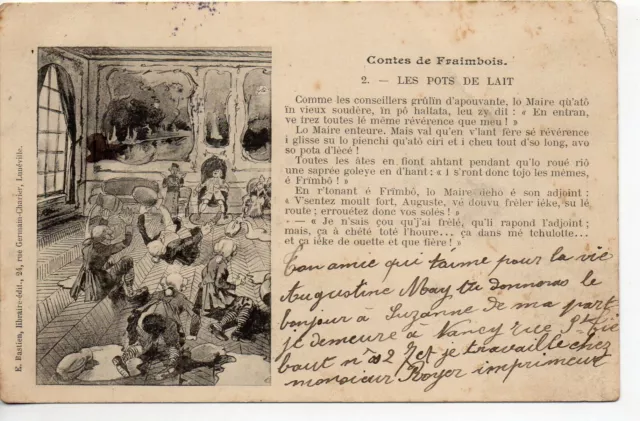 Contes de Fraimbois.
2. — LES POTS DE LAIT
Comme les conseillers grûlin d'apouvante, lo Maire qu'atô
in vieux soudère, in pô hallata, leu zy dit : « En entran,
ve trez toutes lé même révérence que meu ! »
Lo Maire enteure. Mais val qu'en v'lant fère sé révérence
i glisse su lo pienchi qu'atô ciri et i cheu tout d'so long, avo
so pota d'lécé !
Toutes les âtes en fiont ahtant pendant qu'lo roué riô
une saprée goleye en d'hant : « i s'ront donc tojo les mèmes,
é Frîmbô ! »
En r'tonant é Frîmbô, lo Maire deho é son adjoint :
« V'sentez moult fort, Auguste, vé douvu frèler iéke, su lé
route ; errouêtez donc vos solés ! »
— « Je n'sais çou qu'j'ai frélé, qu'li rapond l'adjoint ;
mais, ça é chété toté l'houre... ça dans mé tchulotte...
et ça iéke de ouette et que fière ! »
Ton amie qui t'aime pour la vie
Augustine May tu donneras le
bonjour à Suzanne de ma part
je demeure à Nancy rue St
bout no 2 et je travaille chez
monsieur Royer imprimeur
E. Bastien, libraire-édit., 24, rue Germain-Charier, Lunéville.